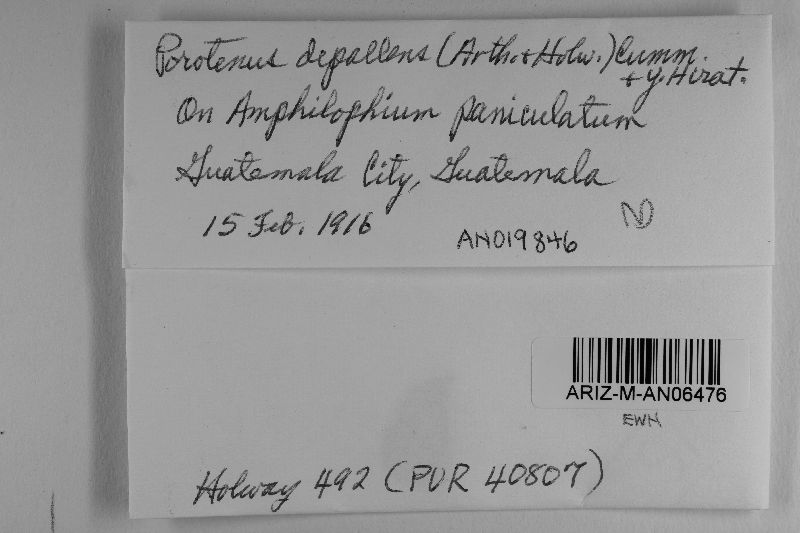 Porotenus depallens (Arth. + Holw.) Cumm.
+ Y. Hirat.
On Amphilophium paniculatum
Guatemala City, Guatemala
15 Feb. 1916
AN019846
N
ARIZ-M-AN06476
EWH
Holway 492 (PUR 40807)